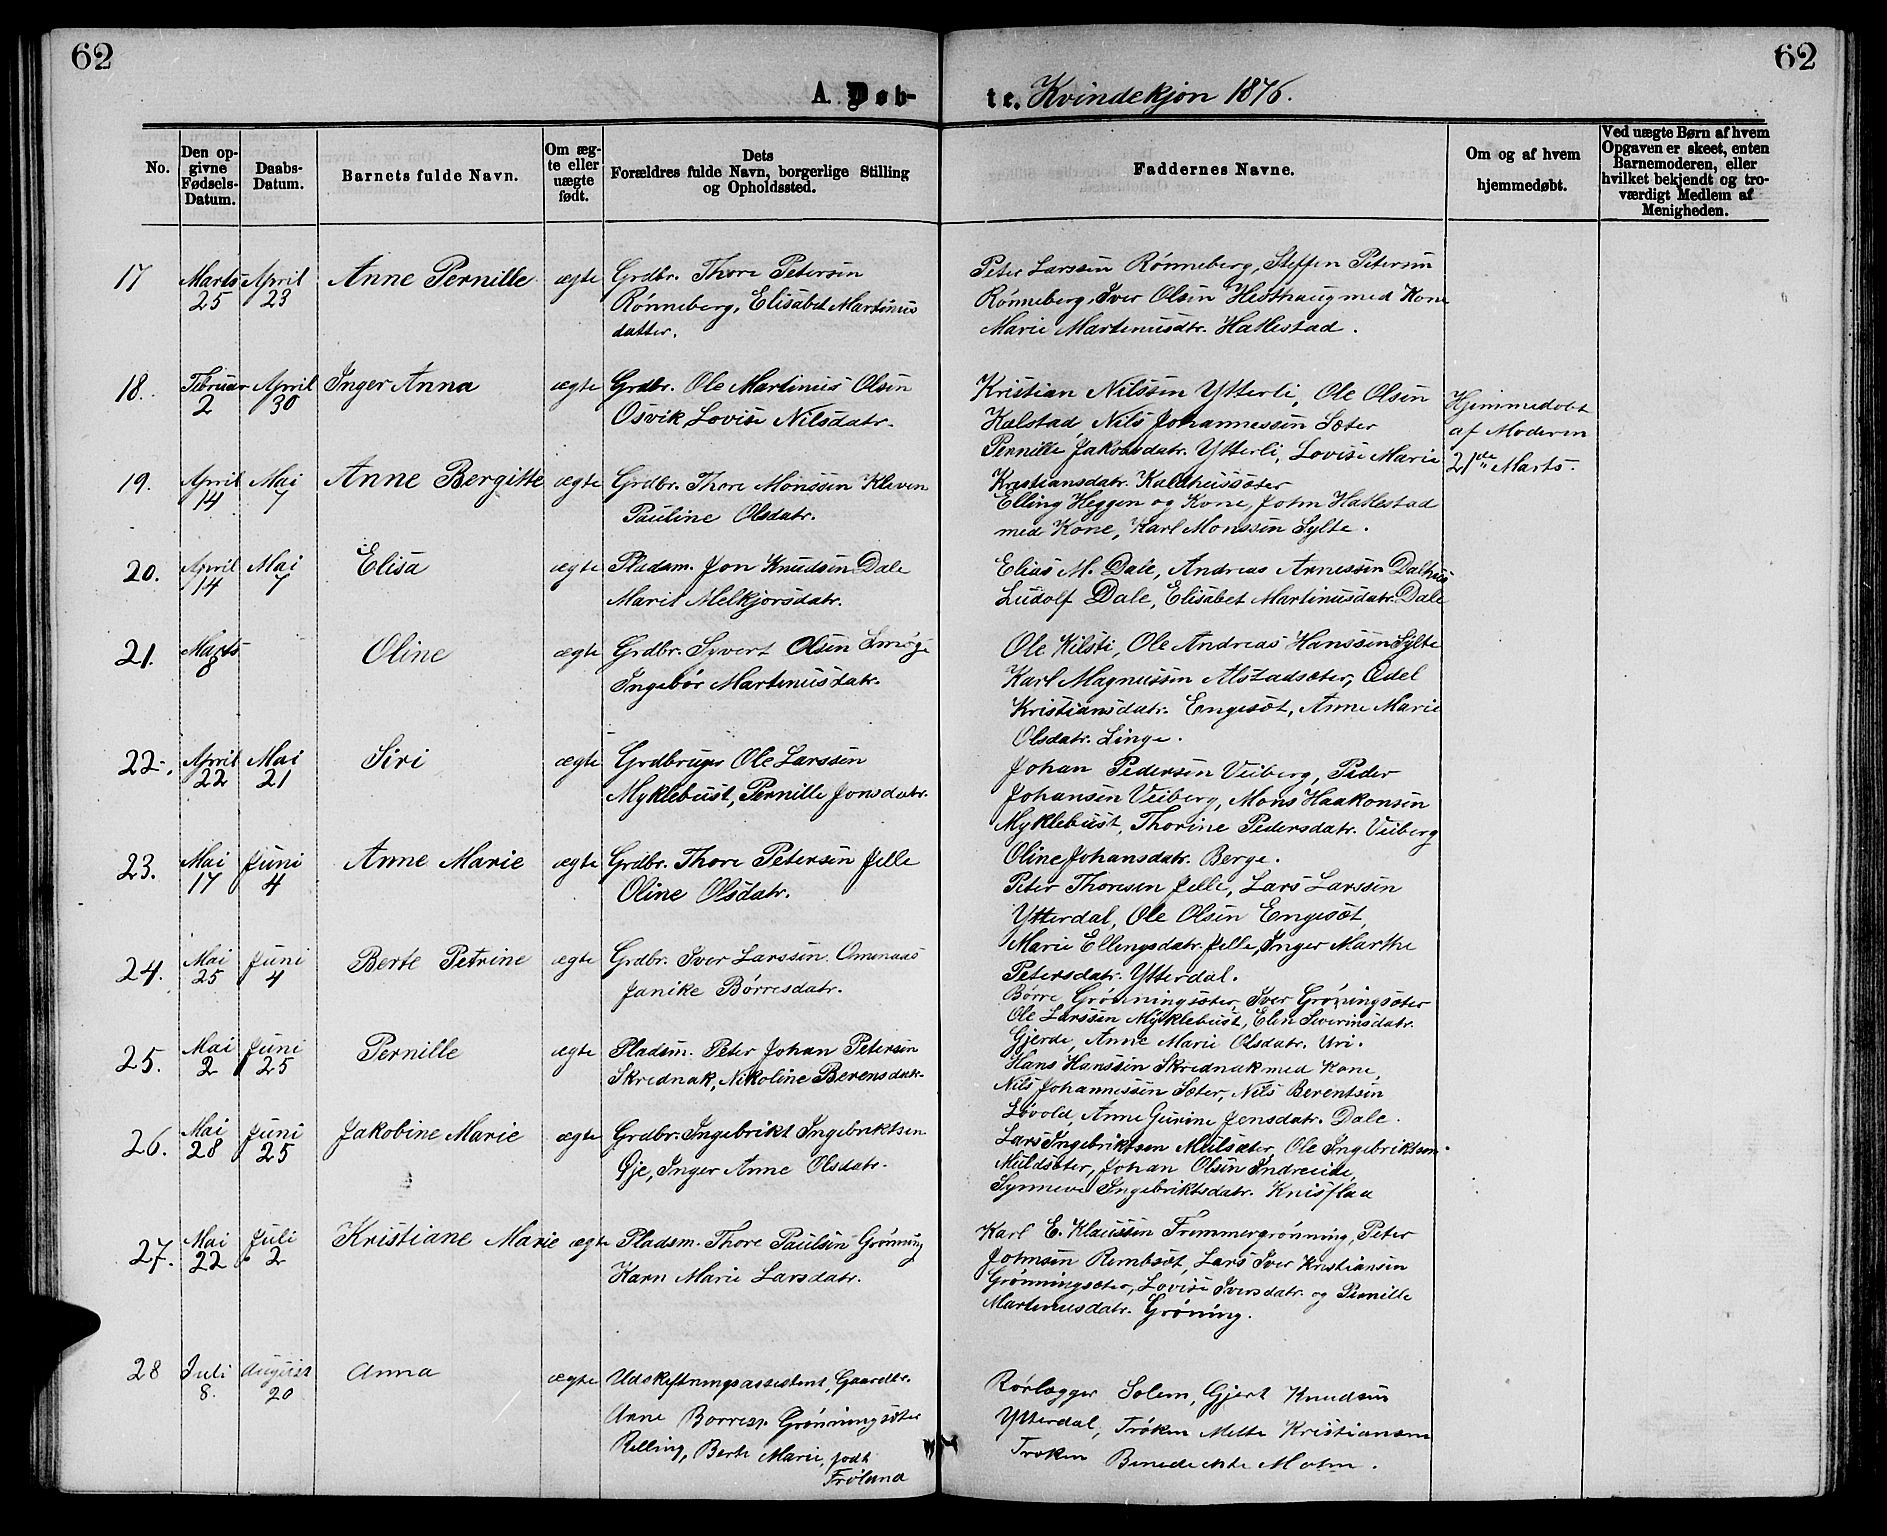 62
62
A. Døb-
te. Kvindekjøn 1876.
No.
Den op-
givne
Fødsels-
Datum.
Daabs-
Datum.
Barnets fulde Navn.
Om æg-
te eller
uægte
født.
Dets
Forældres fulde Navn, borgerlige Stilling
og Opholdssted.
Faddernes Navne.
Om og af hvem
hjemmedøbt.
Ved uægte Børn af hvem
Opgaven er skeet, enten
Barnemoderen, eller
hvilket bekjendt og tro-
værdigt Medlem af
Menigheden.
17 Marts April Anne Pernille ægte Grdbr. Thore Petersen
25 23 Rønneberg, Elisabet Martinus
datter.
Peter Larssen Rønneberg, Steffen Petersen
Rønneberg, Iver Olsen Hesthaug med Kone
Marie Martinusdtr. Hallestad.
18. Februar April Inger Anna ægte Grdbr. Ole Martinus Olsen
2 30 Osvik, Lovise Nilsdatr.
Kristian Nilssen Ytterli, Ole Olsen
Kalstad, Nils Johannessen Sæter
Pernille Jakobsdatr. Ytterli, Lovise Marie
Kristiansdatr. Kaldhussæter
Hjemmedøbt
af Moderen
21de Marts.
19. April Mai Anne Bergitte ægte Grdbr. Thore Monssen Kleven
14 7 Pauline Olsdatr.
Elling Heggen og Kone, John Hallestad
med Kone, Karl Monssen Sylte.
20. April Mai Elisa ægte Pladsm. Jon Knudsen Dale
14 7 Marit Melkjorsdatr.
Elias M. Dale, Andreas Arnessen Dalhus
Ludolf Dale, Elisabet Martinusdatr. Dale
21. Marts Oline ægte Grdbr. Syvert Olsen Linge
8 Ingebør Martinusdatr.
Ole Kilsti, Ole Andreas Hanssen Sylte
Karl Magnussen Alstadsæter, Ædel
Kristiansdatr. Engesæt, Anne Marie
Olsdatr. Linge.
22. April Mai Siri ægte Grdbruger Ole Larssen
22 21 Myklebust, Pernille Jonsdatr.
Johan Pedersen Veiberg, Peder
Johansen Veiberg, Mons Haakonsen
Myklebust, Thorine Pedersdatr. Veiberg
Oline Johansdatr. Berge.
23. Mai Juni Anne Marie ægte Grdbr. Thore Petersen Jelle
17 4 Oline Olsdatr.
Peter Thoresen Jelle, Lars Larssen
Ytterdal, Ole Olsen Engesæt,
Marie Ellingsdatr. Jelle, Inger Marthe
Petersdatr. Ytterdal.
24. Mai Juni Berte Petrine ægte Grdbr. Iver Larssen Omenaas
25 4 Janike Børresdatr.
Børre Grønningsæter, Iver Grøningsæter
Ole Larssen Myklebust, Elen Severinsdatr.
Gjerde, Anne Marie Olsdatr. Uri.
25. Mai Juni Pernille ægte Pladsm. Peter Johan Petersen
2 25 Skrednak, Nikoline Berensdatr.
Hans Hanssen Skrednak med Kone,
Nils Johannessen Sæter, Nils Berentsen
Løvold, Anne Gurine Jensdatr. Dale.
26. Mai Juni Jakobine Marie ægte Grdbr. Ingebrikt Ingebriktsen
28 25 Øje, Inger Anne Olsdatr.
Lars Ingebriktsen Mulsæter, Ole Ingebriktsen
Muldsæter, Johan Olsen Indreeide,
Synneve Ingebriktsdatr. Knisflaa
27. Mai Juli Kristiane Marie ægte Pladsm. Thore Paulsen Grønning
22 2 Karn Marie Larsdatr.
Karl E. Klaussen Fremmergrønning, Peter
Johnsen Rembsæt, Lars Iver Kristiansen
Grønningsæter, Lovise Iversdatr. og Pernille
Martinusdatr. Grøning.
28 Juli August Anna ægte Udskiftningsassistent, Gaardbr.
8. 20 Arne Borresp Grønningsæter
Relling, Berte Marie, født
Frøland
Rørlægger Solem, Gjert Knudsen
Ytterdal, Frøken Mette Kristiansen
Frøken Benedickte Malm.